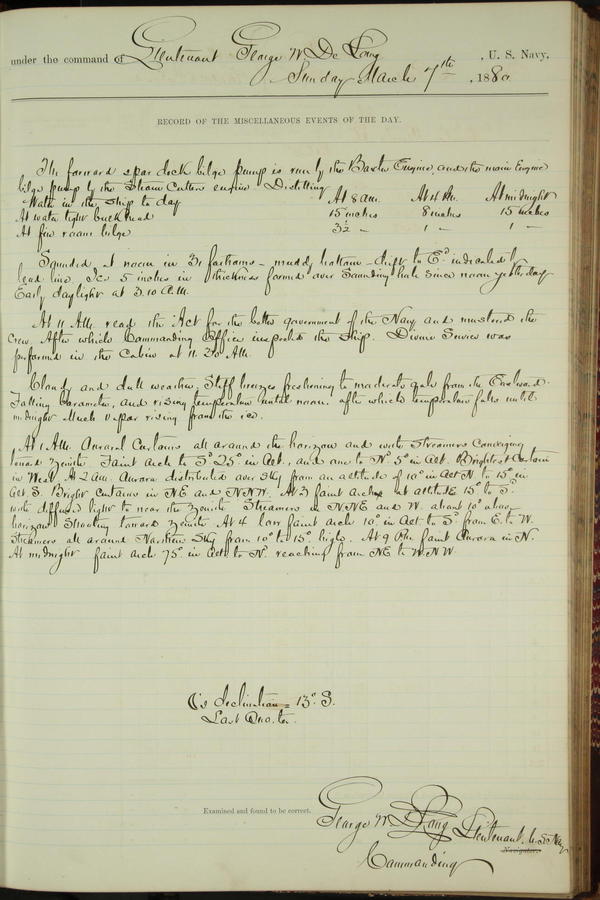 under the command of Lieutenant George W De Long, U. S. Navy,
Sunday March 7th, 1880
RECORD OF THE MISCELLANEOUS EVENTS OF THE DAY.
The forward spar deck bilge pump is run by the Baxter Engine, and the main Engine
bilge pump by the Steam Cutters engine Distilling
Water in the Ship to day At 8 am. At 4 PM. At midnight
At water tight bulkhead 15 inches 8 inches 15 inches
At fire room bilge 3½ " 1 " 1 "
Sounded at noon in 31 fathoms - muddy bottom - drift to Ed. indicated by
lead line. Ice 5 inches in thickness formed over Sounding hole since noon yesterday
Early daylight at 3.10 A.M.
At 11 A.M. read the Act for the better government of the Navy and mustered the
Crew. After which Commanding Officer inspected the Ship. Divine Service was
performed in the Cabin at 11.20 AM.
Cloudy and dull weather, Stiff breezes freshening to moderate gale from the Eastward.
Falling barometer, and rising temperature until noon. after which temperature falls until
midnight Much vapor rising from the ice.
At 1 A.M. Auroral Curtains all around the horizon and with Streamers Converging
toward Zenith Faint arch to Sd 25° in alt., and one to Nd 5° in alt. Brightest Curtain
in West. At 2 am. Aurora distributed over Sky from an altitude of 10° in alt N to 15° in
alt S. Bright Curtains in NE and NNW. At 3 faint arches at altitude 15° to Sd.
with diffused light to near the Zenith Streamers in NNE and W. about 10° above
horizon Shooting toward Zenith At 4 low faint arch 10° in alt to Sd from E. to W.
Streamers all around Northern Sky from 10° to 15° high. At 9 PM faint Aurora in N.
At midnight faint arch 75° in alt to N. reaching from NE to WNW
☾'s declination = 13° S.
Last Quarter.
Examined and found to be correct.
George W De Long Lieutenant. U.S. Navy
Navigator.
Commanding